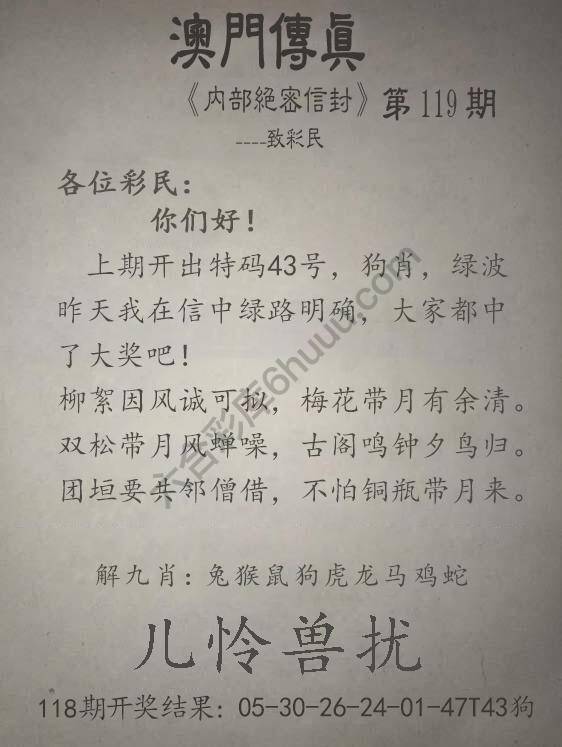 澳門傳眞
《内部絕密信封》第119期
----致彩民
各位彩民：
你们好！
上期开出特码43号，狗肖，绿波
昨天我在信中绿路明确，大家都中
了大奖吧！
柳絮因风诚可拟，梅花带月有余清。
双松带月风蝉噪，古阁鸣钟夕鸟归。
团垣要共邻僧借，不怕铜瓶带月来。
六合彩库6huuu.com
解九肖：兔猴鼠狗虎龙马鸡蛇
儿怜兽扰
118期开奖结果：05-30-26-24-01-47T43狗